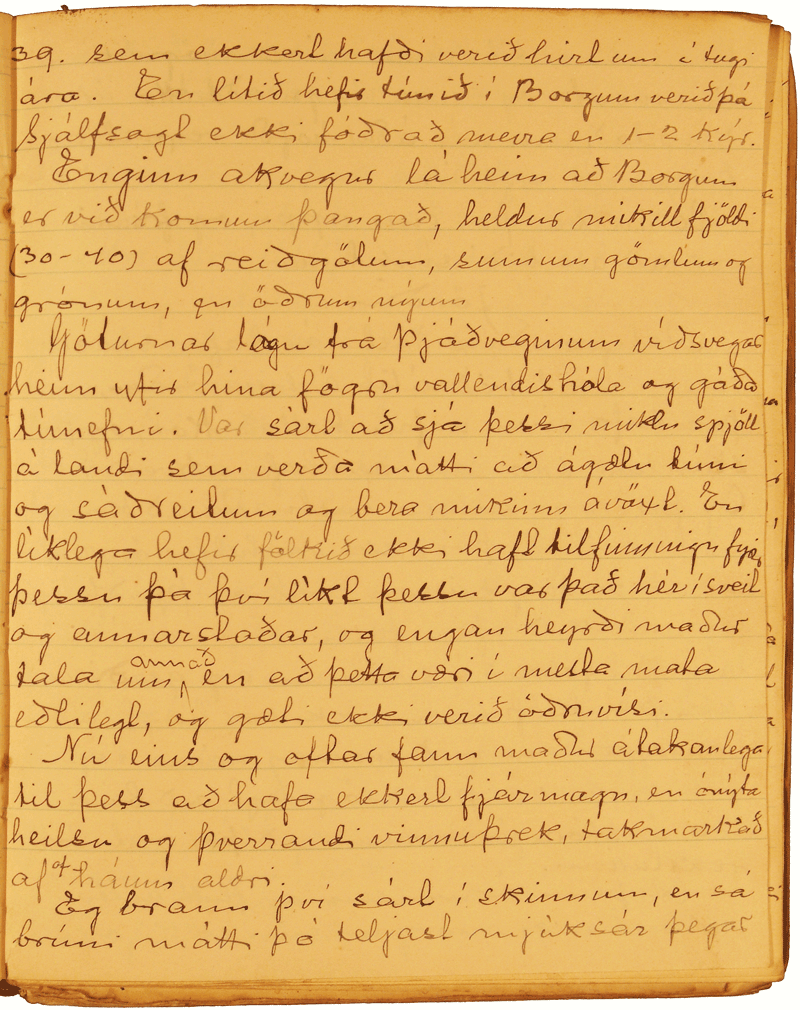 39. sem ekkert hafði verið hirt um í tugi
ára. En lítið hefir túnið í Borgum verið þá
Sjálfsagt ekki fóðrað meira en 1-2 kýr.
Enginn akvegur lá heim að Borgum
er við komum þangað, heldur mikill fjöldi
(30-40) af reiðgötum, sumum gömlum og
grónum, en öðrum nýjum
Göturnar lágu frá Þjóðveginum víðsvegar
heim yfir hina fögru vallendishóla og góða
túnefni. Var sárt að sjá þessi miklu spjöll
á landi sem verða mátti að ágætu túni
og sáðreitum og bera mikinn ávöxt. En
líklega hefir fólkið ekki haft tilfinningu fyrir
þessu þá því líkt þessu var það hér í sveit
og annarstaðar, og engan heyrði maður
tala um annað en að þetta væri í mesta mata
eðlilegt, og gæti ekki verið öðruvísi.
Nú eins og oftar fann maður átakanlega
til þess að hafa ekkert fjármagn, en ónýta
heilsu og þverrandi vinnuþrek, takmarkað
af of háum aldri.
Eg brann því sárt í skinnum, en sá
bruni mátti þó teljast mjúksár þegar